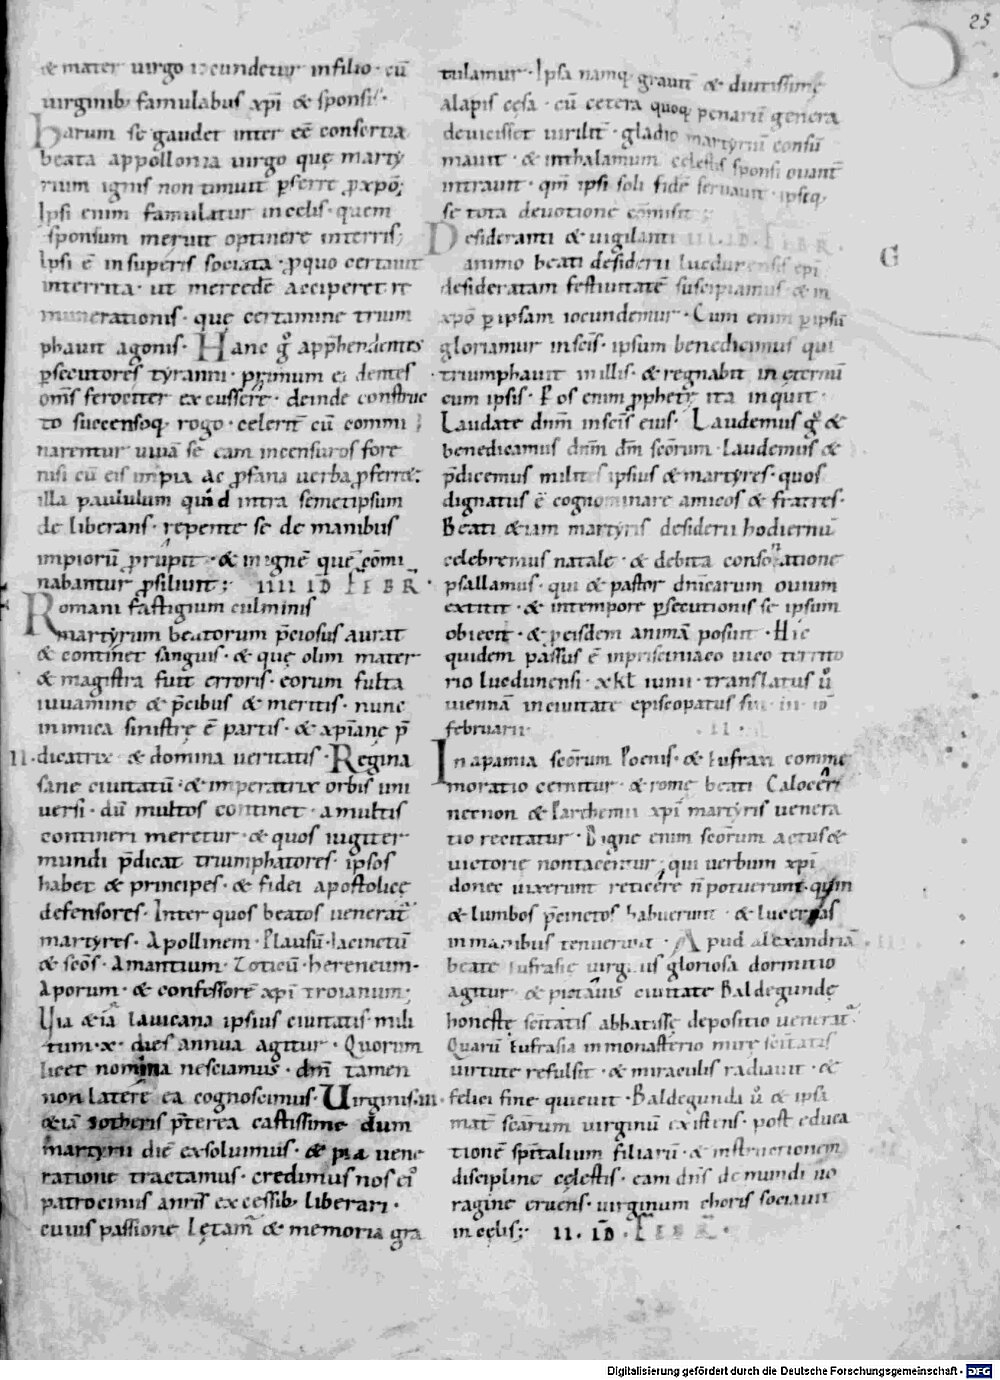 25
& mater uirgo iocundetur infilio · cū
uirginib; famulabus xp̄i & sponsis ·
Harum se gaudet inter eē consortia
beata appollonia uirgo quę marty
rium ignis non timuit ꝑferre ꝓ xp̄o;
Ipsi enim famulatur incelis · quem
sponsum meruit optinere interris;
Ipsi ē insuperis sociata · ꝓquo certauit
interrita · ut mercedē acciperet re
munerationis · quę certamine trium
phauit agonis · Hanc gͦ app̄hendentes
ꝑsecutores tyranni · primum ei dentes
om̄s ferociter excussere · deinde constrūc
to succensoq; rogo · celerit̄ cū commi
narentur uiuā se eam incensuros fore
nisi cū eis impia ac ꝓfana uerba ꝓferret
illa paululum quid intra semetipsum
de liberans · repente se de manibus
impiorū ꝓrupit · & inignē quē comi
nabantur ꝓsiliuit; IIII ID FEBR ·
Romani fastigium culminis
martyrum beatorum p̄ciosus aurat
& continet sanguis · & quę olim mater
& magistra fuit erroris · eorum fulta
iuuamine & p̄cibus & meritis · nunc
inimica sinistrę ē partis · & xp̄ianę p̄
II · dicatrix & domina ueritatis · Regina
sane ciuitatū · & imperatrix orbis uni
uersi · dū multos continet · amultis
contineri meretur · & quos iugiter
mundi p̄dicat triumphatores · ipsos
habet & principes · & fidei apostolicę
defensores · Inter quos beatos uenerat̄
martyres · Apollinem · Plausū · Iacinctū
& sc̄os · Amantium · Zoticū · hereneum ·
Aporum · & confessorē xp̄i TROIANUM;
Uia &iā lauicana ipsius ciuitatis · mili
tum · x · dies annua agitur · Quorum
licet nomina nesciamus · dn̄m tamen
non latere ea cognoscimus · Uirginis · III ·
&iā sotheris p̄terea castissime dum
martyrii diē exsoluimus · & pia uene
ratione tractamus · credimus nos ei
patrocinus excessib; liberari ·
cuius passione lętam̄ & memoria gra
tulamur · Ipsa namq; grauit̄ & diutissime
alapis cęsa · cū cetera quoq; penarū genera
deuicisset uirilit̄ · gladio martyriū consū
mauit · & inthalamum celestis sponsi ouant̄
intrauit · qm̄ ipsi soli fidē seruauit · ipsiq;
se tota deuotione comisit;
Desideranti & uigilanti III · ID · FEBR ·
animo beati desiderii luedunensis ep̄i G
desideratam festiuitatē suscipiamus · & in
xp̄o ꝑ ipsam iocundemur · Cum enim ꝑ ipsū
gloriamur insc̄is · ipsum benedicimus qui
triumphauit inillis · & regnabit inęternū
cum ipsis · Hos enim ꝓphetę ita inquit ·
Laudate dn̄m insc̄is eius · Laudemus gͦ &
benedicamus dn̄m dm̄ sc̄orum · Laudemus &
p̄dicemus milites ipsius & martyres · quos
dignatus ē cognominare amicos & fratres ·
Beati &iam martyris desiderii hodiernū
celebremus natale · & debita consolatione
psallamus · qui & pastor dn̄icarum ouium
extitit · & intempore ꝑsecutionis se ipsum
obiecit · & ꝓ eisdem animā posuit · Hic
quidem passus ē inpriscinaco uico territo
rio luedunensi · x kl iunii · translatus ū
uiennā inciuitate episcopatus sui · in · id
februarii · II ·
In apamia sc̄orum Poenis · & Eufraxi comme
moratio cernitur · & romę beati Caloceri
necnon & Parthemii xp̄i martyris uenera
tio recitatur · Digne enim sc̄orum actus &
uictorię nontacentur; qui uerbum xp̄i
donec uixerunt reticēre n̄ potuerunt · quin
& lumbos p̄cinctos habuerunt · & lucernas
inmanibus tenuerunt · Apud alexandriā · III ·
beatę Eufrasię uirginis gloriosa dormitio
agitur · & pictauis ciuitate Baldegundę
honestę sc̄itatis abbatissę depositio uenerat̄ ·
Quarū Eufrasia inmonasterio mire sc̄itatis
uirtute refulsit · & miraculis radiauit · &
felici fine quieuit · Baldegundi ū & ipsa
mat̄ sc̄arum uirginū existens · post educa
tionē sp̄italium filiarū · & instructionem
disciplinę cęlestis · eam dn̄s demundi uo
ragine eruens · uirginum choris sociauit
incęlis; II · ID · FEBR ·
Digitalisierung gefördert durch die Deutsche Forschungsgemeinschaft · DFG